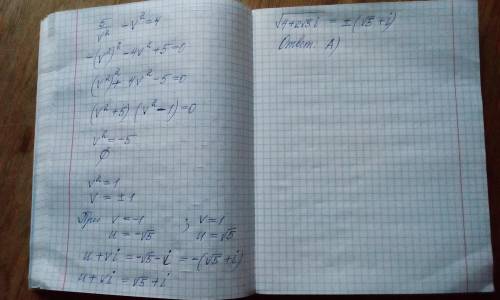 5/v² - v² = 4
-(v²)² - 4v² + 5 = 0
(v²)² + 4v² - 5 = 0
(v² + 5)(v² - 1) = 0
v² = -5
∅
v² = 1
v = ±1
При v = -1 ; v = 1
u = -√5 u = √5
u + vi = -√5 - i = -(√5 + i)
u + vi = √5 + i
√4+2√5 i = ±(√5 + i)
Ответ: А)